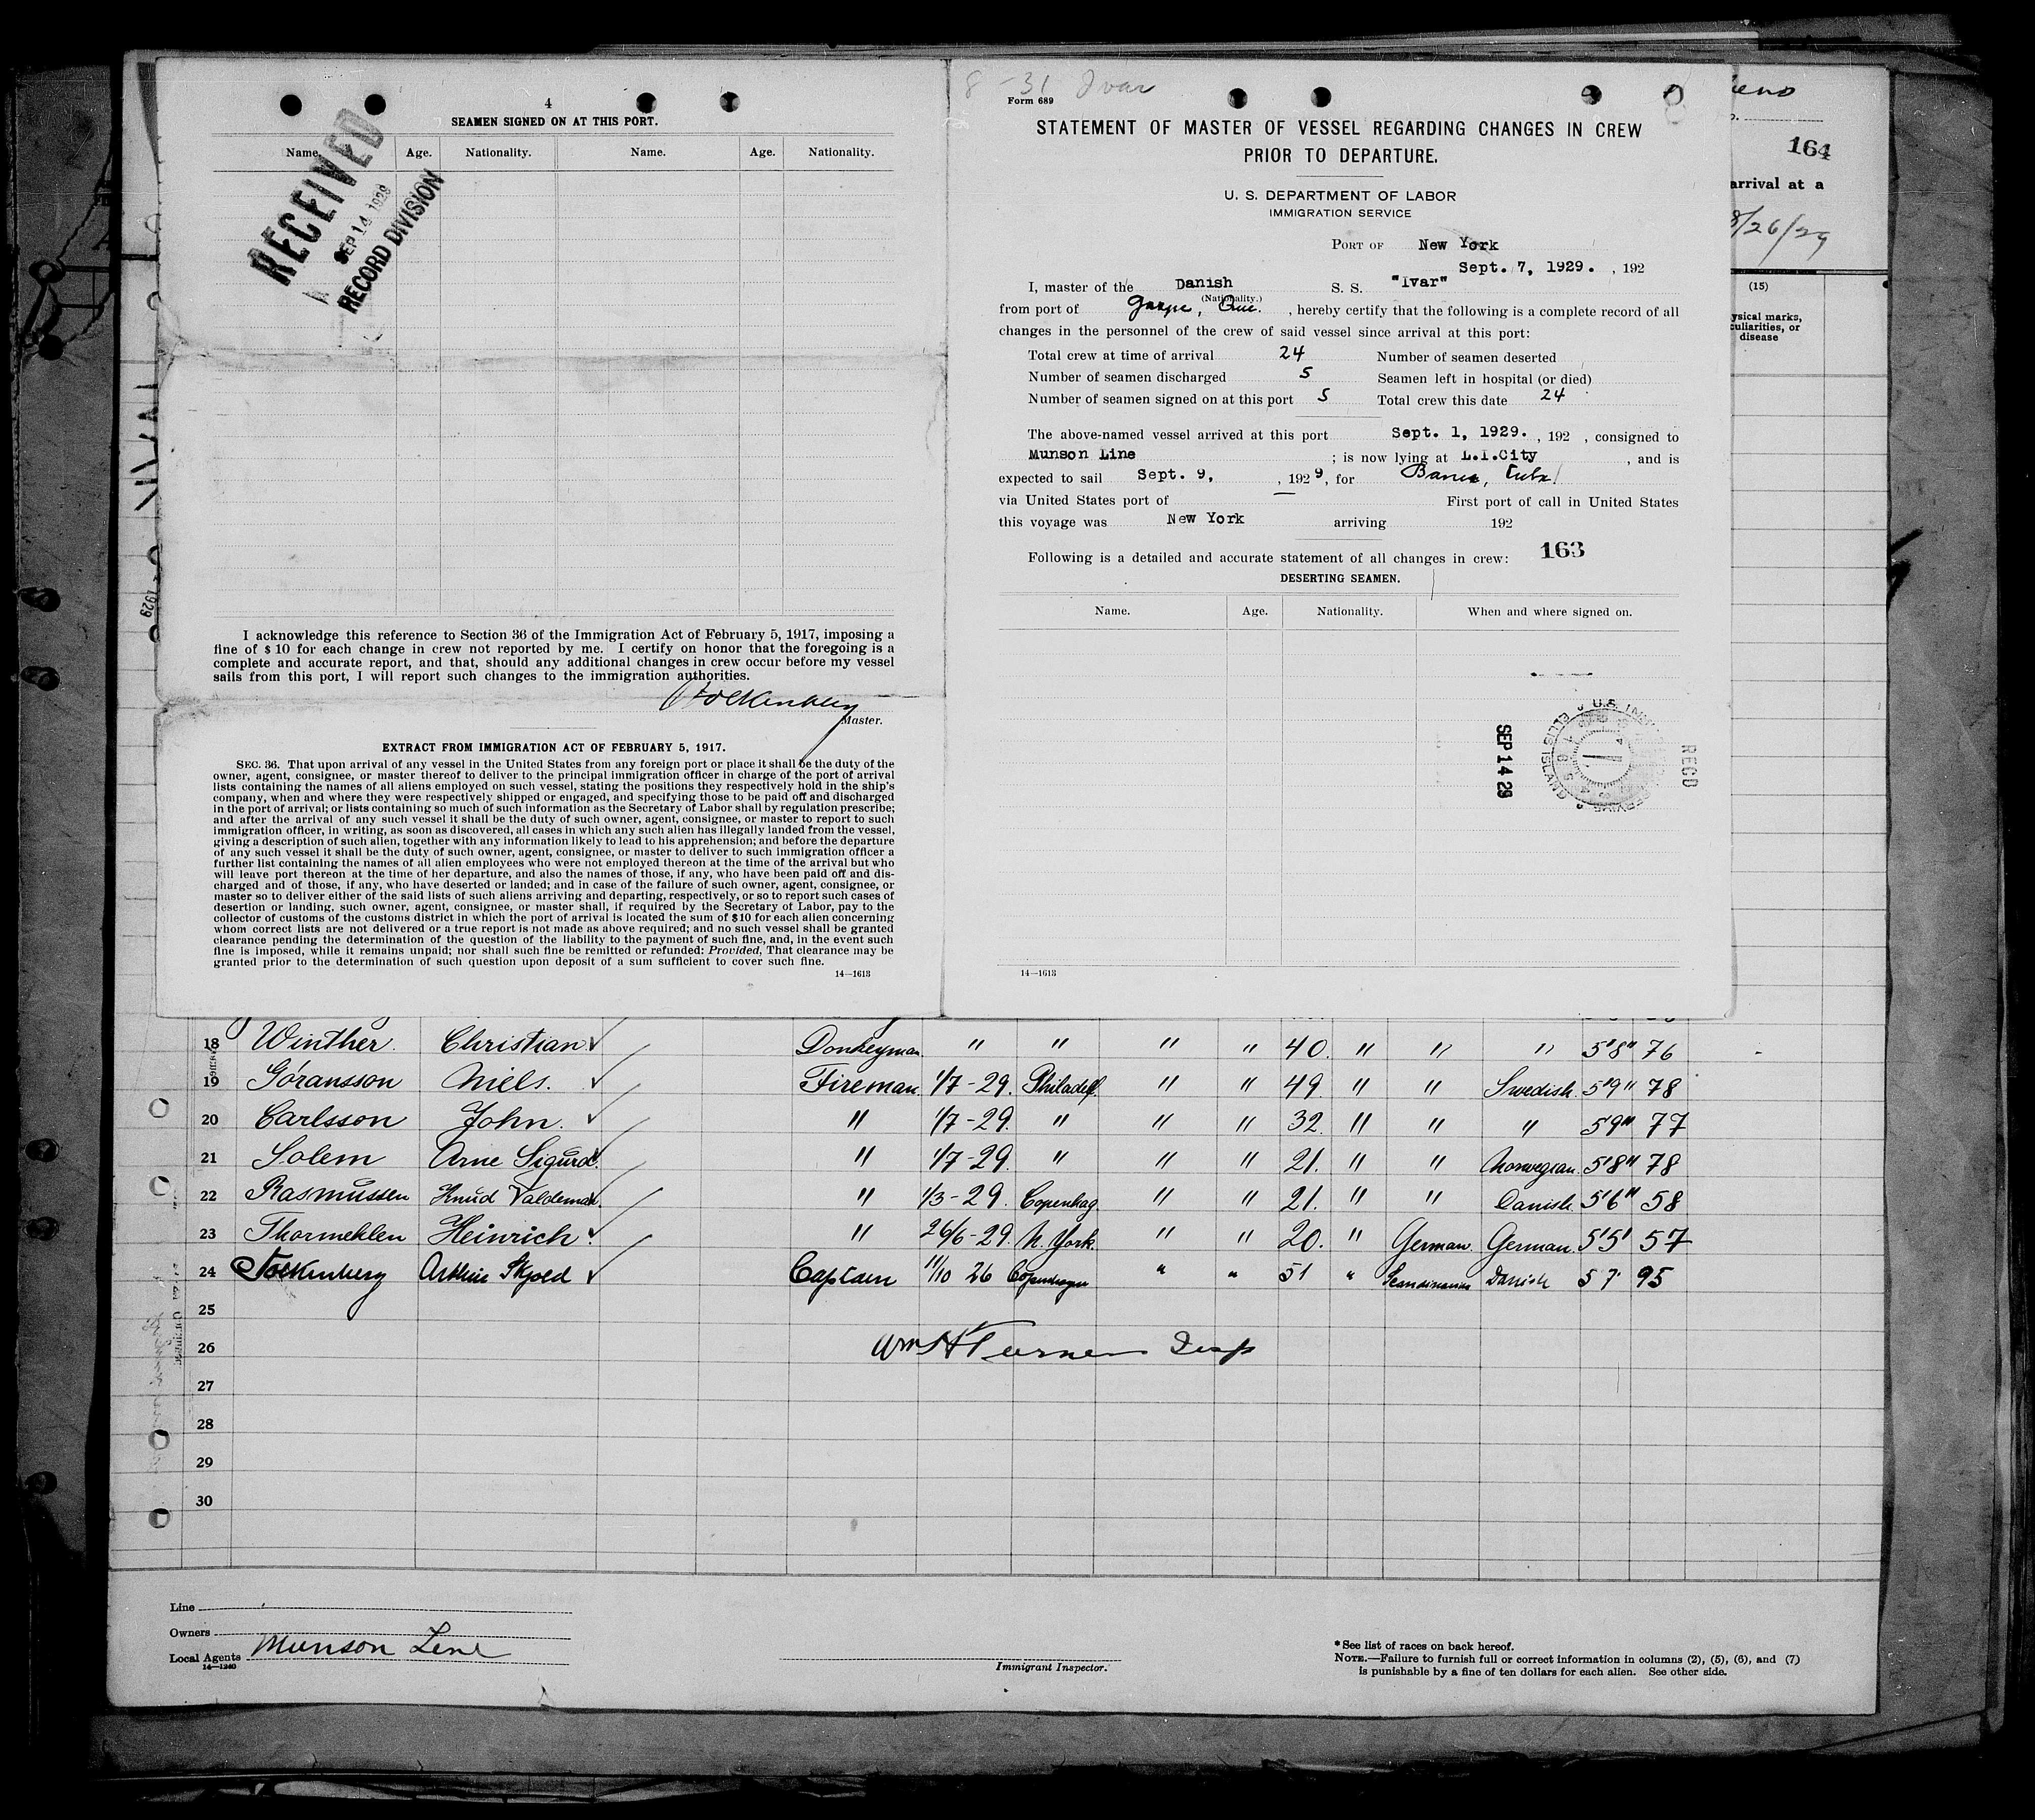 4
SEAMEN SIGNED ON AT THIS PORT.
Name. Age. Nationality. Name. Age. Nationality.
RECEIVED
SEP 14 1929
RECORD DIVISION
I acknowledge this reference to Section 36 of the Immigration Act of February 5, 1917, imposing a
fine of $10 for each change in crew not reported by me. I certify on honor that the foregoing is a
complete and accurate report, and that, should any additional changes in crew occur before my vessel
sails from this port, I will report such changes to the immigration authorities.
Master.
EXTRACT FROM IMMIGRATION ACT OF FEBRUARY 5, 1917.
SEC. 36. That upon arrival of any vessel in the United States from any foreign port or place it shall be the duty of the
owner, agent, consignee, or master thereof to deliver to the principal immigration officer in charge of the port of arrival
lists containing the names of all aliens employed on such vessel, stating the positions they respectively hold in the ship's
company, when and where they were respectively shipped or engaged, and specifying those to be paid off and discharged
in the port of arrival; or lists containing so much of such information as the Secretary of Labor shall by regulation prescribe;
and after the arrival of any such vessel it shall be the duty of such owner, agent, consignee, or master to report to such
immigration officer, in writing, as soon as discovered, all cases in which any such alien has illegally landed from the vessel,
giving a description of such alien, together with any information likely to lead to his apprehension; and before the departure
of any such vessel it shall be the duty of such owner, agent, consignee, or master to deliver to such immigration officer a
further list containing the names of all alien employees who were not employed thereon at the time of the arrival but who
will leave port thereon at the time of her departure, and also the names of those, if any, who have been paid off and dis-
charged and of those, if any, who have deserted or landed; and in case of the failure of such owner, agent, consignee, or
master so to deliver either of the said lists of such aliens arriving and departing, respectively, or so to report such cases of
desertion or landing, such owner, agent, consignee, or master shall, if required by the Secretary of Labor, pay to the
collector of customs of the customs district in which the port of arrival is located the sum of $10 for each alien concerning
whom correct lists are not delivered or a true report is not made as above required; and no such vessel shall be granted
clearance pending the determination of the question of the liability to the payment of such fine, and, in the event such
fine is imposed, while it remains unpaid; nor shall such fine be remitted or refunded: Provided, That clearance may be
granted prior to the determination of such question upon deposit of a sum sufficient to cover such fine.
14—1613
8-31 Ivar
Form 689
STATEMENT OF MASTER OF VESSEL REGARDING CHANGES IN CREW
PRIOR TO DEPARTURE.
U. S. DEPARTMENT OF LABOR
IMMIGRATION SERVICE
PORT OF New York
Sept. 7, 1929. , 192
I, master of the Danish S. S. "Ivar"
(Nationality.)
from port of Gaspe, Que. , hereby certify that the following is a complete record of all
changes in the personnel of the crew of said vessel since arrival at this port:
Total crew at time of arrival 24 Number of seamen deserted
Number of seamen discharged 5 Seamen left in hospital (or died)
Number of seamen signed on at this port 5 Total crew this date 24
The above-named vessel arrived at this port Sept. 1, 1929. , 192 , consigned to
Munson Line ; is now lying at L.I.City , and is
expected to sail Sept. 9, , 1929, for Banes, Cuba
via United States port of — First port of call in United States
this voyage was New York arriving 192
Following is a detailed and accurate statement of all changes in crew: 163
DESERTING SEAMEN.
Name. Age. Nationality. When and where signed on.
SEP 14 29
RECD
14—1613
164
arrival at a
8/26/29
(15)
ysical marks,
culiarities, or
disease
1929
18 Winther Christian Donkeyman " " " " 40. " " " 5'8" 76
19 Göransson Niels. Fireman 1/7-29. Philadelf. " " 49. " " Swedish. 5'9" 78
20 Carlsson John. " 1/7-29. " " " 32. " " " 5'9" 77
21 Solem Arne Sigurd. " 1/7-29. " " " 21. " " Norwegian. 5'8" 78
22 Rasmussen Knud Valdemar. " 1/3-29. Copenhag. " " 21. " " Danish. 5'6" 58
23 Thormehlen Heinrich. " 26/6-29. N. York. " " 20. " German. German. 5'5' 57
24 Folkenberg Arthur Skjold Captain 11/10 26 Copenhagen " " 51 " Scandinavian Danish 5 7' 95
25
26 Wm H Turner Insp
27
28
29
30
Line
Owners
Local Agents Munson Line
14—1240
Immigrant Inspector.
*See list of races on back hereof.
NOTE.—Failure to furnish full or correct information in columns (2), (5), (6), and (7)
is punishable by a fine of ten dollars for each alien. See other side.